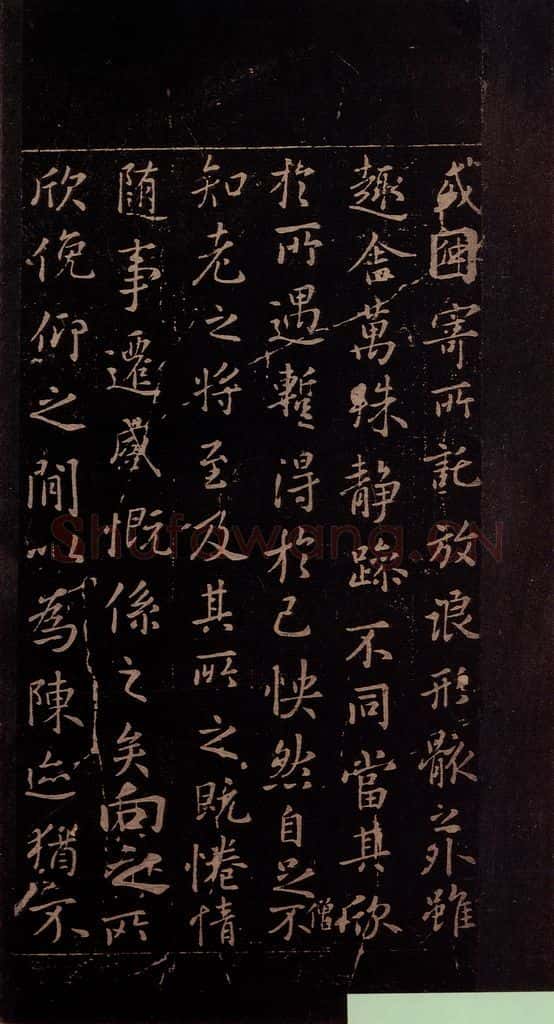 或因寄所託放浪形骸之外雖
趣舍萬殊静躁不同當其欣
僧
於所遇暫得於己怏然自足不
知老之将至及其所之既惓情
随事遷感慨係之矣向之所
欣俛仰之間以為陳迹猶不
Shufawang.cn